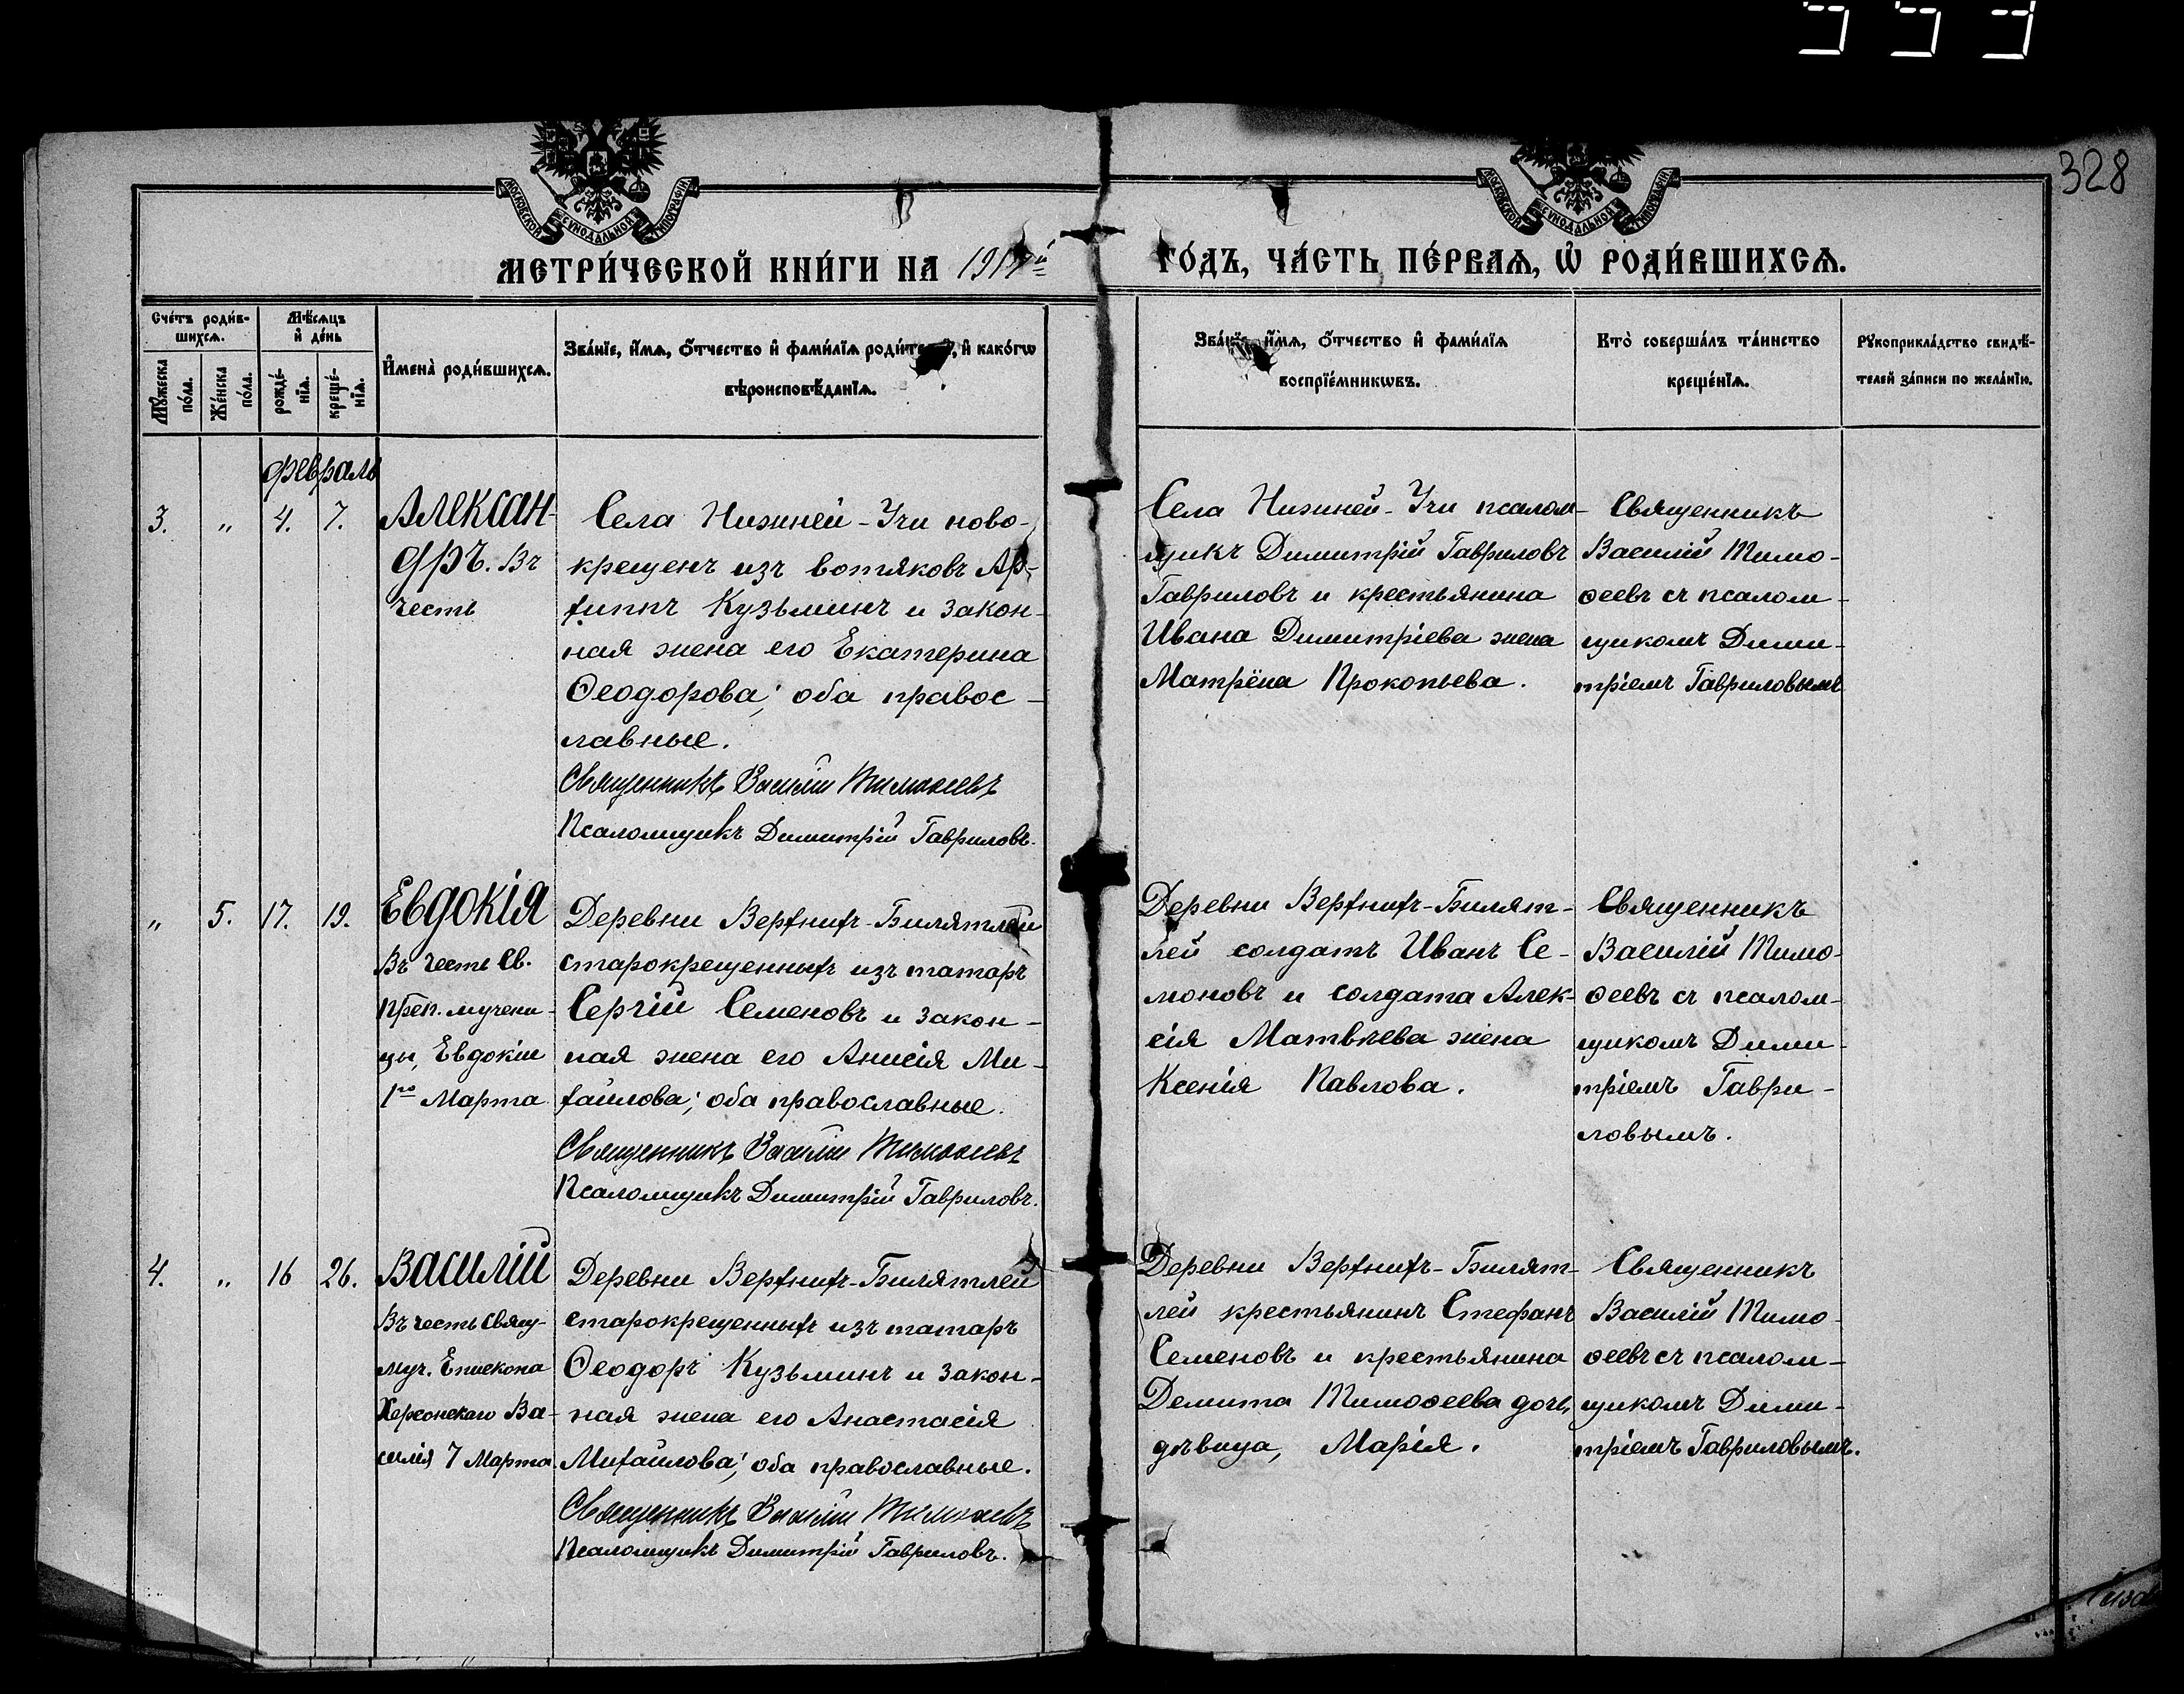 328
МОСКОВСКОЙ СѴНОДАЛЬНОЙ ТИПОГРАФІИ
МОСКОВСКОЙ СѴНОДАЛЬНОЙ ТИПОГРАФІИ
МЕТРИ́ЧЕСКОЙ КНИ́ГИ НА
ГО́ДЪ, ЧА́СТЬ ПЕ́РВАѦ, Ѡ҆ РОДИ́ВШИХСѦ.
Сче́тъ роди́в-
шихсѧ.
Мѣ́сѧцъ
и҆ де́нь
Мꙋ́жеска
по́ла.
Же́нска
по́ла.
рожде́-
нїѧ.
креще́-
нїѧ.
И҆мена̀ роди́вшихсѧ.
Зва́нїе, и҆́мѧ, ѻ҆́тчество и҆ фами́лїѧ роди́телей, и҆ како́гѡ
вѣроисповѣ́данїѧ.
Зва́нїе, и҆́мѧ, ѻ҆́тчество и҆ фами́лїѧ
воспрїе́мникѡвъ.
Кто̀ соверша́лъ та́инство
креще́нїѧ.
Рꙋкоприкла́дство свидѣ́-
телей за́писи по жела́нїю.
февраль
3. " 4. 7.
Алексан-
дръ. Въ
честь
Села Нижней-Учи ново-
крещенъ изъ вотяковъ Ар-
хиппъ Кузьминъ и закон-
ная жена его Екатерина
Ѳеодорова; оба правос-
лавные.
Священникъ Василій Тимоѳеевъ
Псаломщикъ Димитрій Гавриловъ.
Села Нижней-Учи псалом-
щикъ Димитрій Гавриловъ
Гавриловъ и крестьянина
Ивана Димитріева жена
Матрёна Прокопьева.
Священникъ
Василій Тимо-
ѳеевъ съ псалом-
щикомъ Дими-
тріемъ Гавриловымъ
" 5. 17. 19.
Евдокія
Въ честь Св.
Преп. мучени-
цы, Евдокіи
1го Марта
Деревни Верхнихъ-Билятлей
старокрещенныхъ изъ татаръ
Сергій Семеновъ и закон-
ная жена его Анисія Ми-
хайлова; оба православные.
Священникъ Василій Тимоѳеевъ
Псаломщикъ Димитрій Гавриловъ.
Деревни Верхнихъ-Билят-
лей солдатъ Иванъ Се-
моновъ и солдата Алек-
сія Матвѣева жена
Ксенія Павлова.
Священникъ
Василій Тимо-
ѳеевъ съ псалом-
щикомъ Дими-
тріемъ Гаври-
ловымъ.
4. " 16 26.
Василій
Въ честь Свящ-
муч. Епископа
Херсонскаго Ва-
силія 7 Марта.
Деревни Верхнихъ-Билятлей
старокрещенныхъ изъ татаръ
Ѳеодоръ Кузьминъ и закон-
ная жена его Анастасія
Михайлова; оба православные.
Священникъ Василій Тимоѳеевъ
Псаломщикъ Димитрій Гавриловъ.
Деревни Верхнихъ-Билят-
лей крестьянинъ Стефанъ
Семеновъ и крестьянина
Демита Тимоѳеева дочь,
дѣвица, Марія.
Священникъ
Василій Тимо-
ѳеевъ съ псалом-
щикомъ Дими-
тріемъ Гавриловымъ.